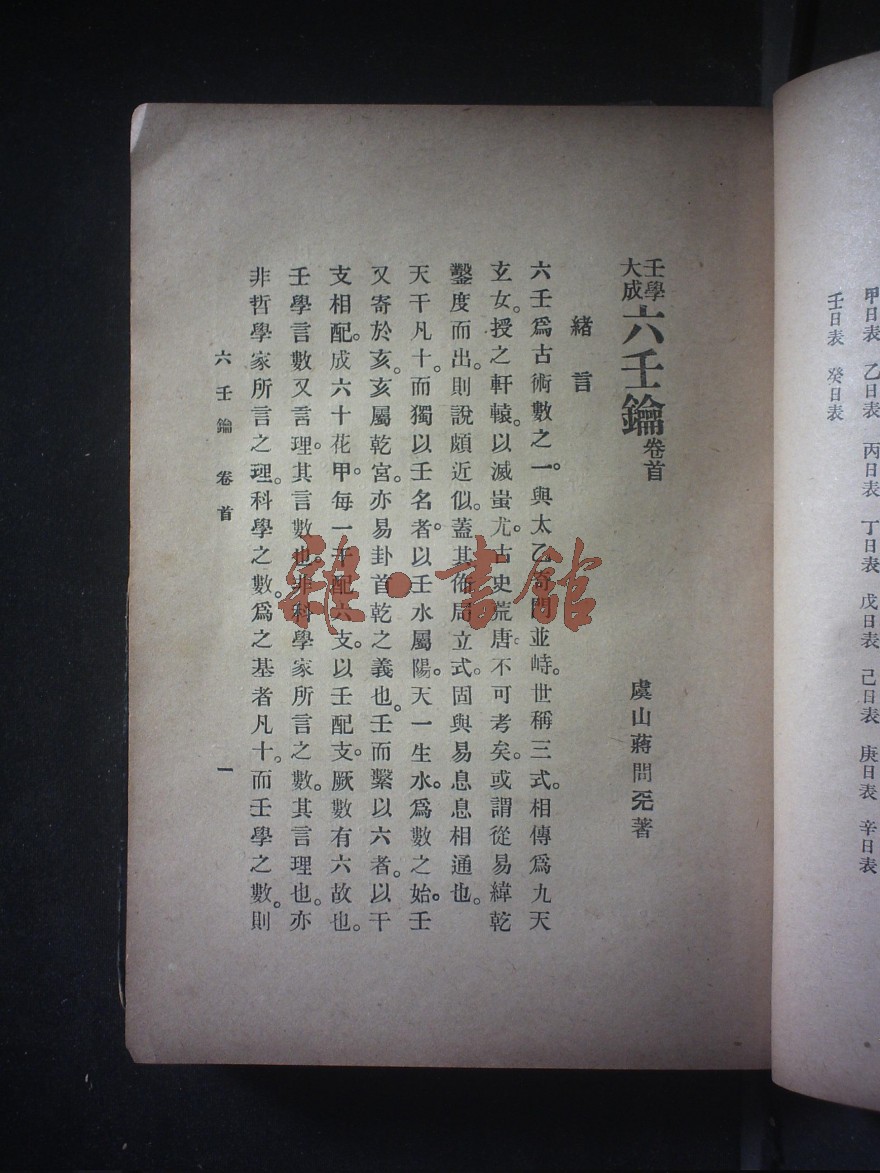 甲日表 乙日表 丙日表 丁日表 戊日表 己日表 庚日表 辛日表
壬日表 癸日表
壬學大成 六壬鑰 卷首
虞山蔣問著
緒言
六壬爲古術數之一。與太乙奇門並峙。世稱三式。相傳爲九天
玄女。授之軒轅。以滅蚩尤。古史荒唐。不可考矣。或謂從易緯乾
鑿度而出。則說頗近似。蓋其佈局立式。固與易息息相通也。
天干凡十。而獨以壬名者。以壬水屬陽。天一生水。爲數之始。壬
又寄於亥。亥屬乾宮。亦易卦首乾之義也。壬而繫以六者。以干
支相配。成六十花甲。每一干配六支。以壬配支。厥數有六故也。
壬學言數又言理。其言數也。非科學家所言之數。其言理也。亦
非哲學家所言之理。科學之數。爲之基者凡十。而壬學之數。則
六壬鑰 卷首 一
雜·書館